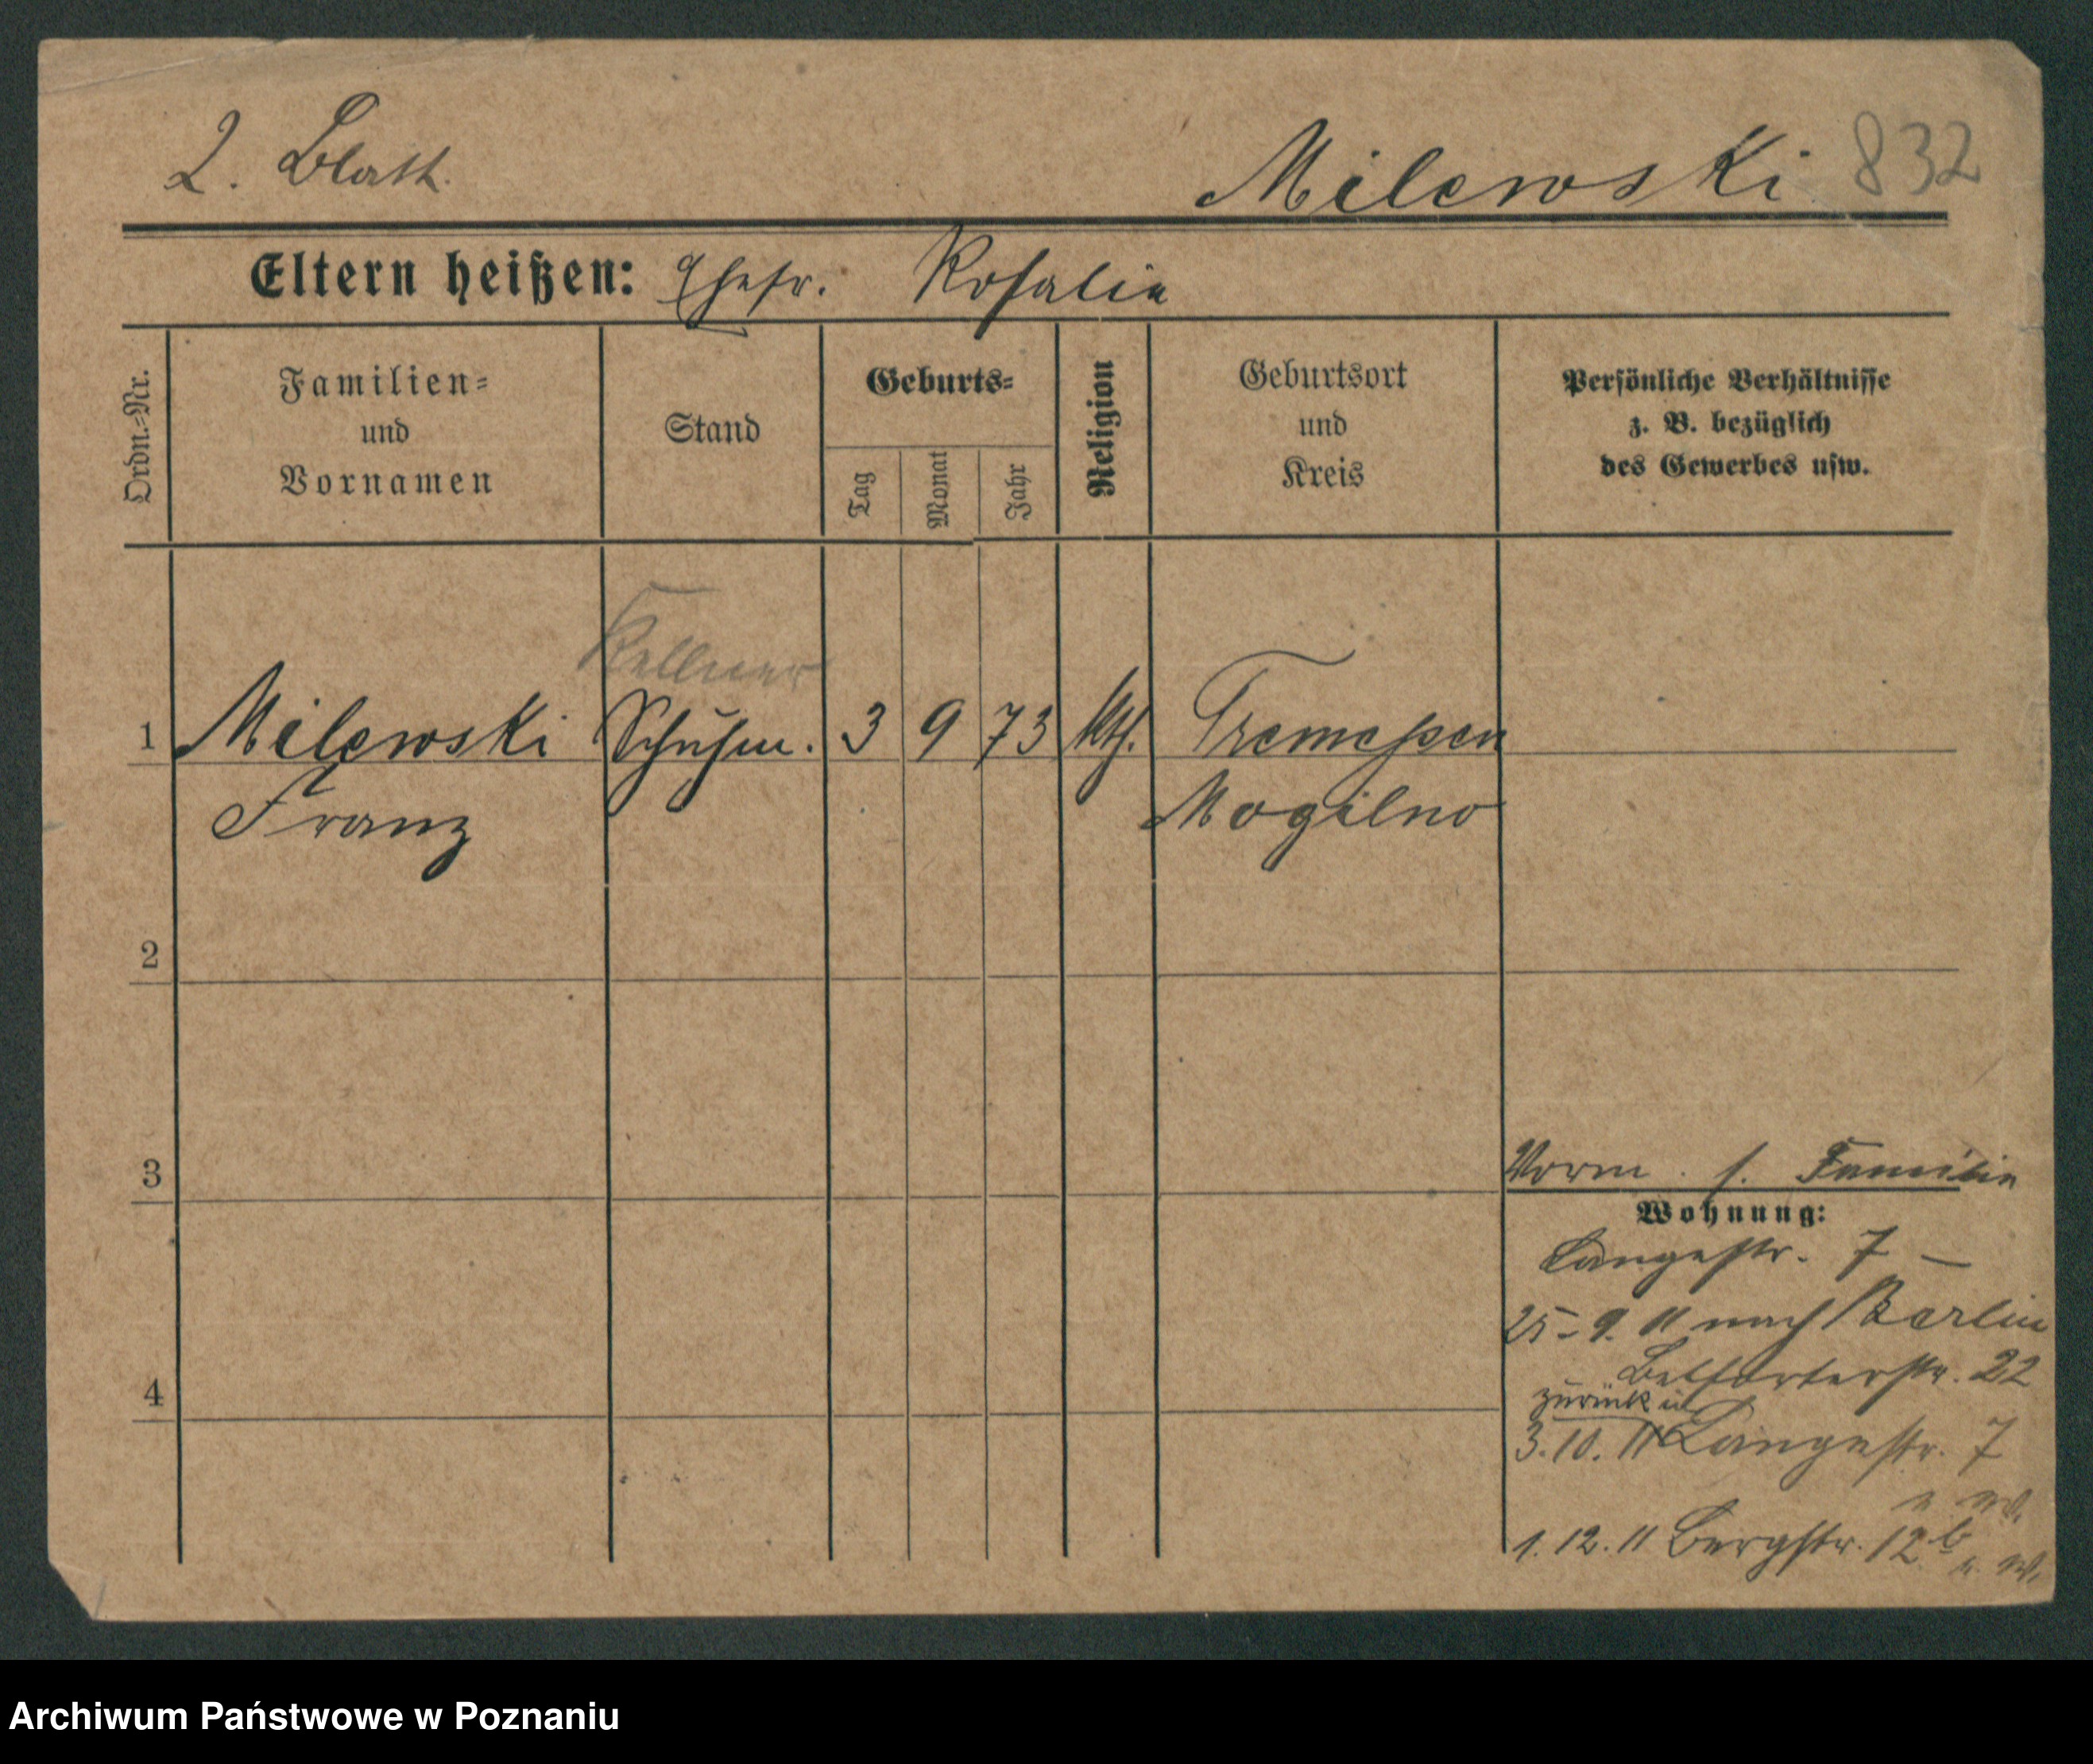 2. Blatt.
Milewski 832
Eltern heißen: Ehefr. Rosalie
Ordn.=Nr.
Familien=
und
Vornamen
Stand
Geburts=
Tag
Monat
Jahr
Religion
Geburtsort
und
Kreis
Persönliche Verhältnisse
z. B. bezüglich
des Gewerbes usw.
Kellner
1 Milewski Schuhm. 3 9 73 kth. Tremessen
Franz Mogilno
2
3
Vorm. s. Familie
Wohnung:
Langestr. 7 —
25-9. 11 nach Berlin
Belforterstr. 22
zurück in
3.10. 11 Langestr. 7
n. w.
1. 12. 11 Bergstr. 12b
n. w.
4
Archiwum Państwowe w Poznaniu